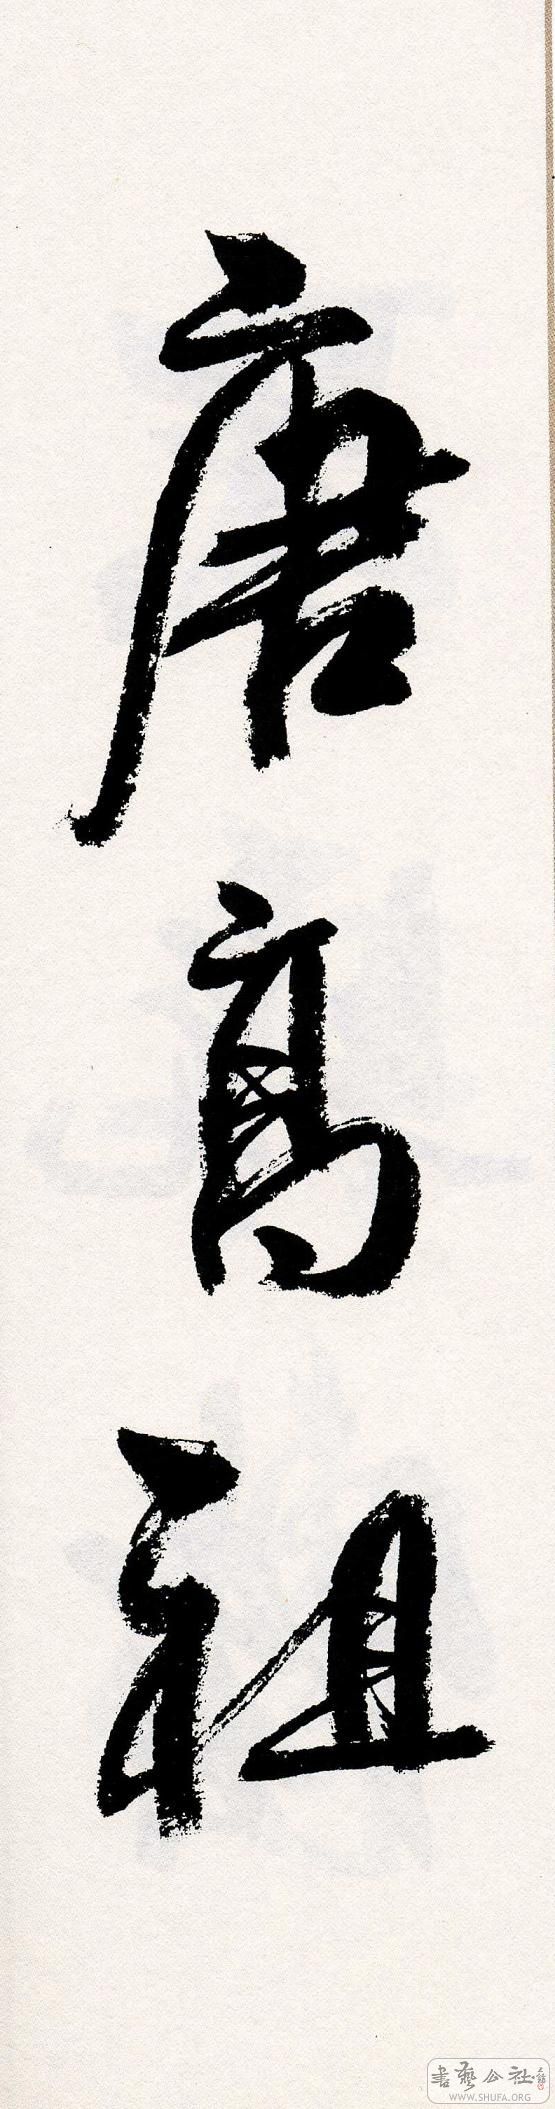 唐高祖
書藝公社
WWW.SHUFA.ORG